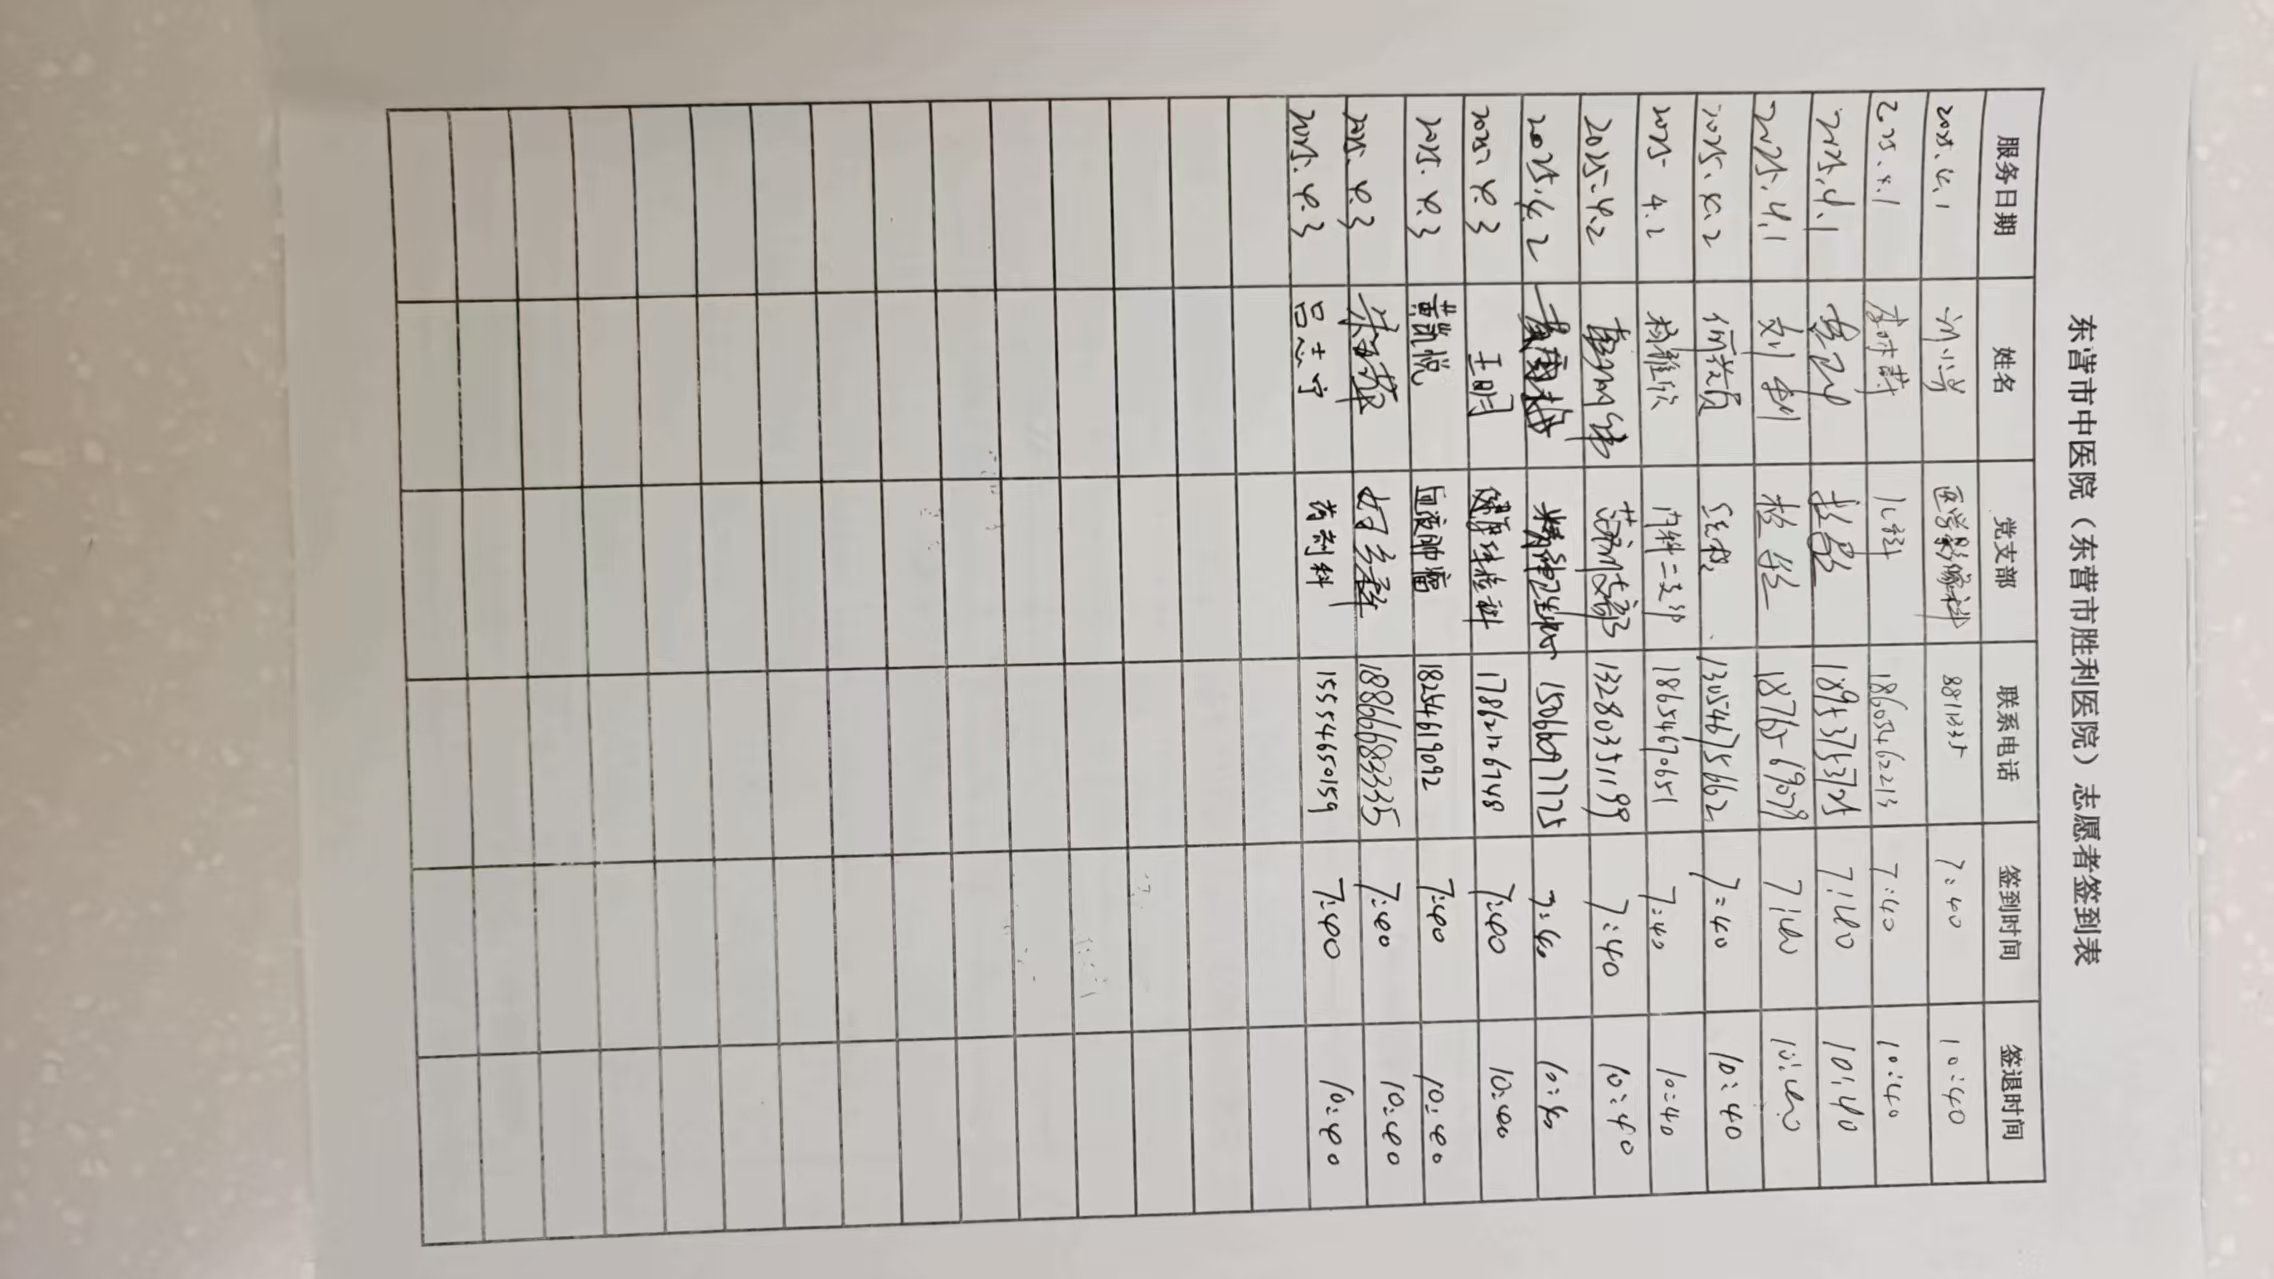 东营市中医院（东营市胜利医院）志愿者签到表
服务日期 姓名 党支部 联系电话 签到时间 签退时间
2025.4.1 医学影像科 8811335 7:40 10:40
2025.4.1 儿科 18605462213 7:40 10:40
2025.4.1 7:40 10:40
2025.4.1 刘利 7:40 10:40
2025.4.2 13054675662 7:40 10:40
2025.4.2 杨雅欣 内科二支部 18654670651 7:40 10:40
2025.4.2 13280351199 7:40 10:40
2025.4.2 15066097725 7:40 10:40
2025.4.3 王明 17862126748 7:40 10:40
2025.4.3 黄凯悦 血液肿瘤 18254619092 7:40 10:40
2025.4.3 18866683335 7:40 10:40
2025.4.3 吕志宁 药剂科 15554650159 7:40 10:40